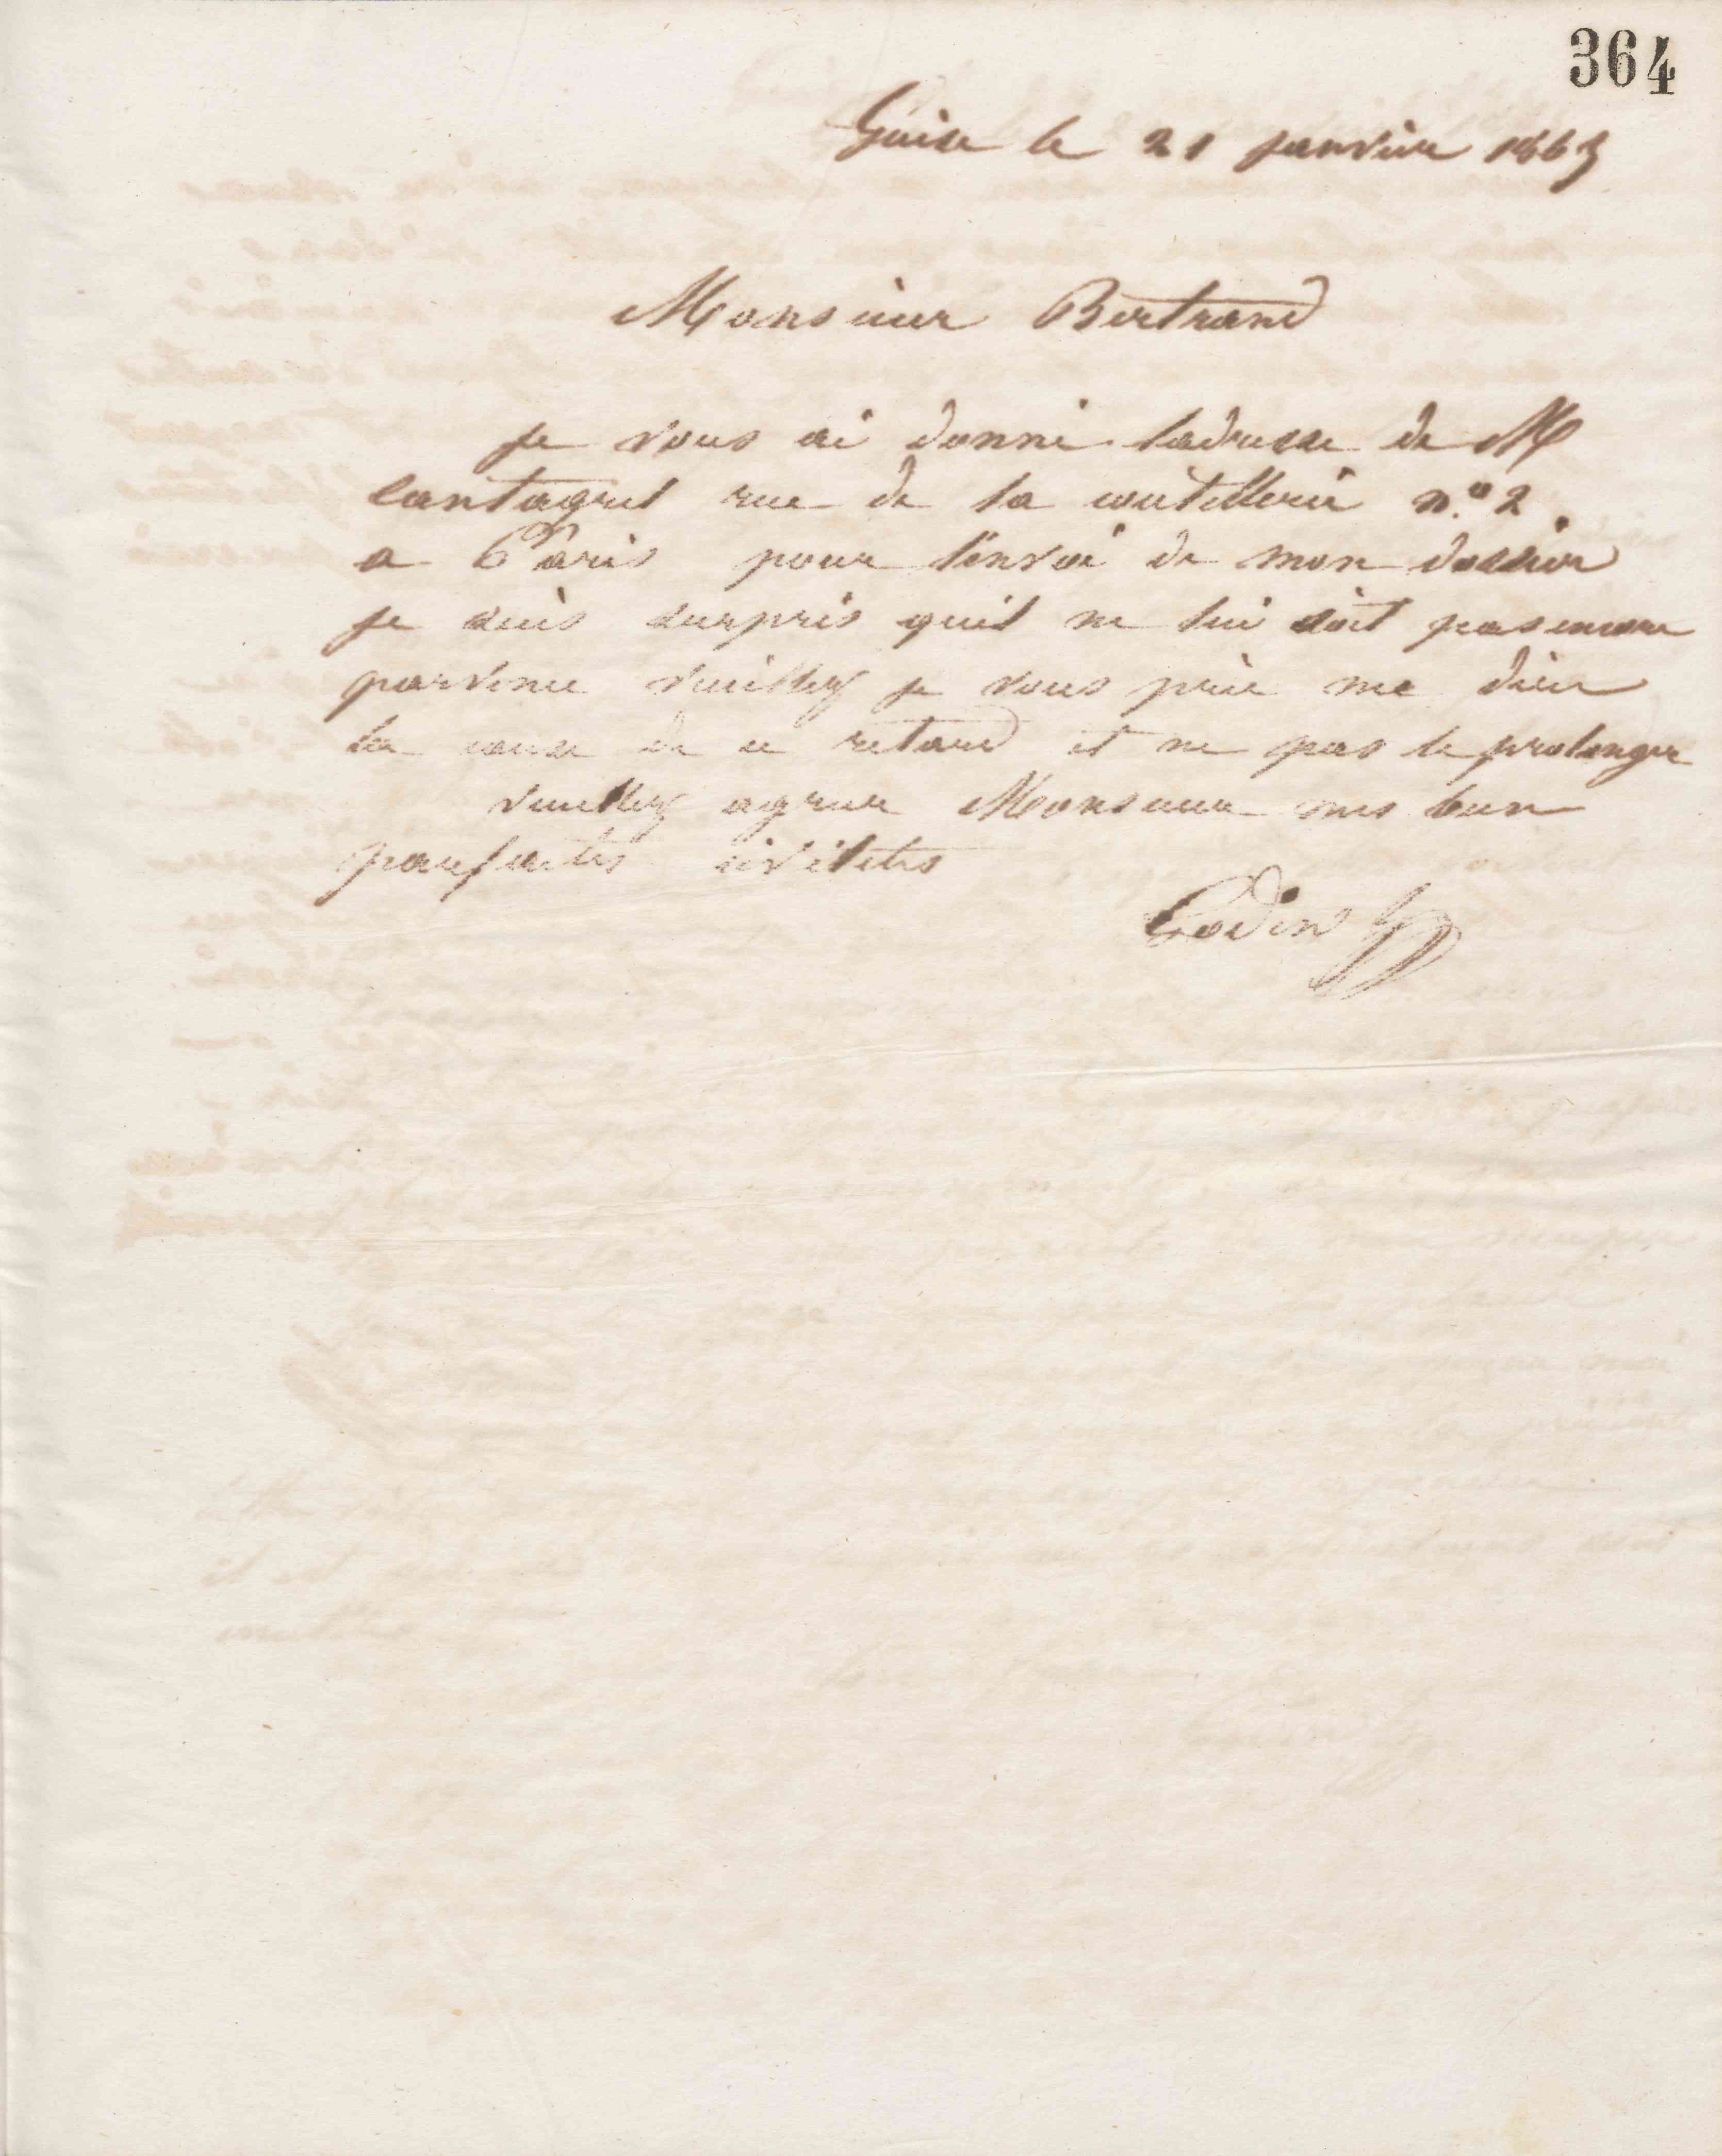 364
Guise le 21 janvier 1865
Monsieur Bertrand
je vous ai donné ladresse de M
Cantagrel rue de la coutellerie n.o 2.
a Paris pour lenvoi de mon dossier
je suis surpris quil ne lui soit pas encore
parvenu veuillez je vous prie me dire
la cause de ce retard et ne pas le prolonger
veuillez agréer Monsieur mes bien
parfaites civilités
Godin